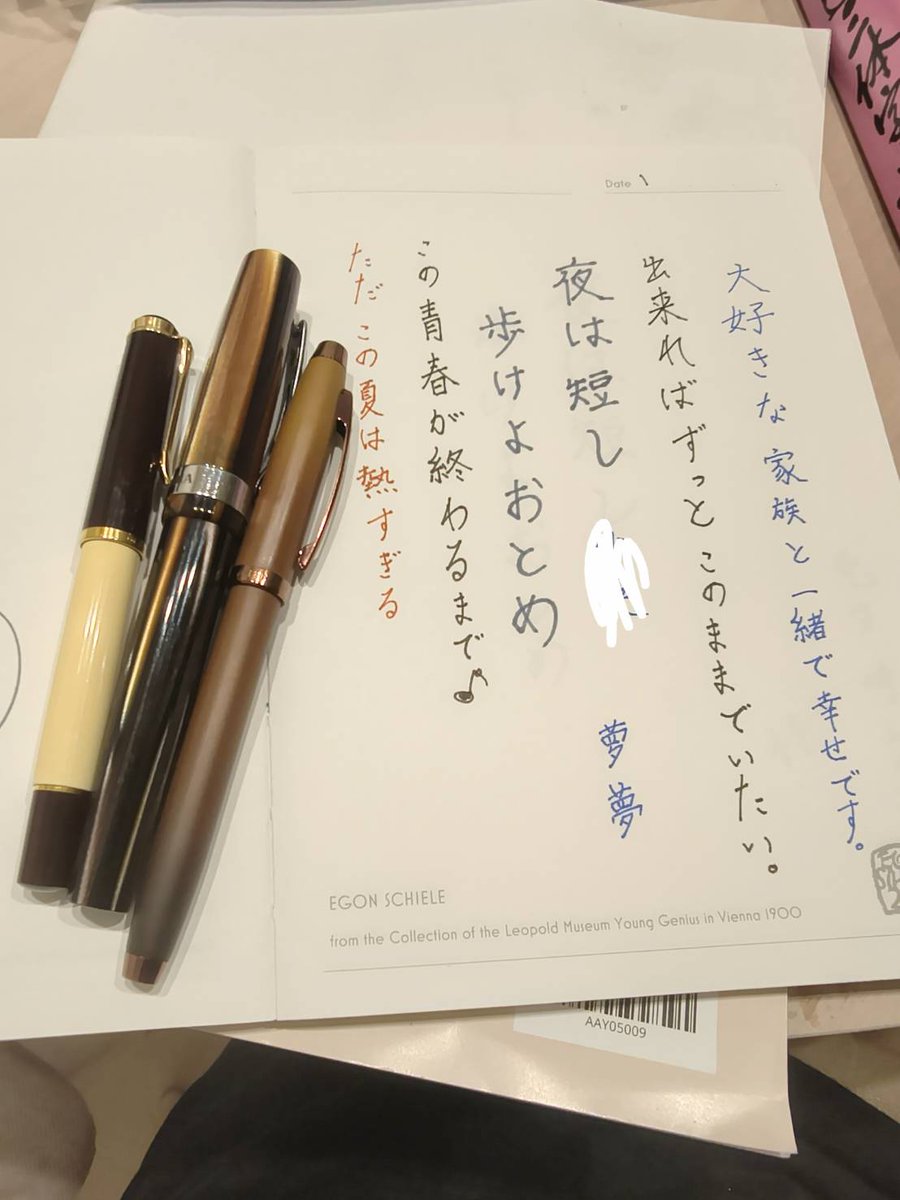 Date
大好きな家族と一緒で幸せです。
出来ればずっとこのままでいたい。
夜は短し
歩けよおとめ
夢夢
この青春が終わるまで♪
ただこの夏は熱すぎる
EGON SCHIELE
from the Collection of the Leopold Museum Young Genius in Vienna 1900
AAY05009